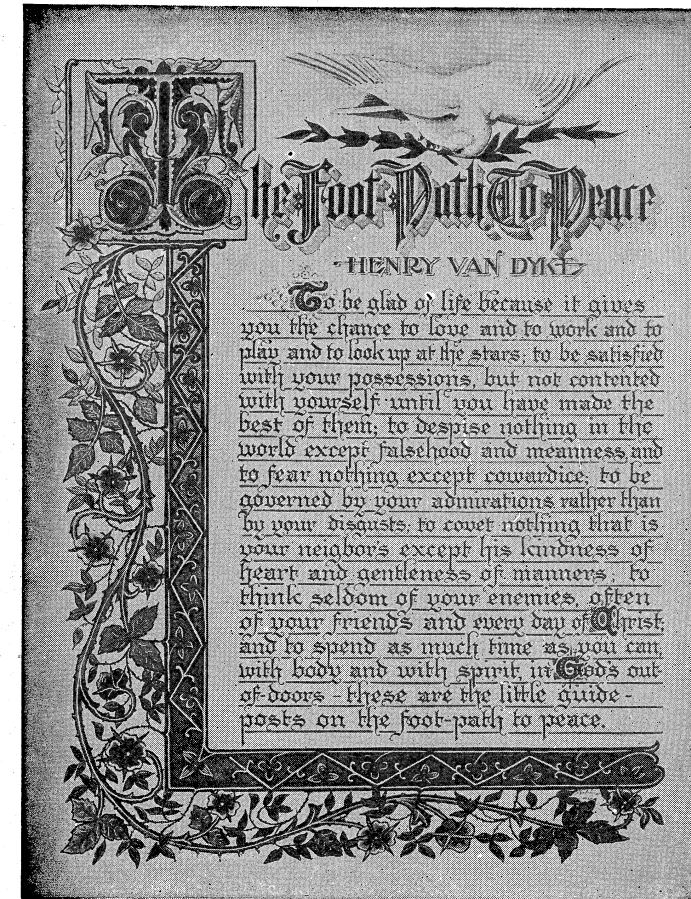 The Foot-Path To Peace
-HENRY VAN DYKE-
To be glad of life because it gives
you the chance to love and to work and to
play and to look up at the stars; to be satisfied
with your possessions, but not contented
with yourself until you have made the
best of them; to despise nothing in the
world except falsehood and meanness, and
to fear nothing except cowardice; to be
governed by your admirations rather than
by your disgusts; to covet nothing that is
your neigbor's except his kindness of
heart and gentleness of manners; to
think seldom of your enemies, often
of your friends and every day of Christ;
and to spend as much time as you can,
with body and with spirit, in God's out-
of-doors - these are the little guide-
posts on the foot-path to peace.